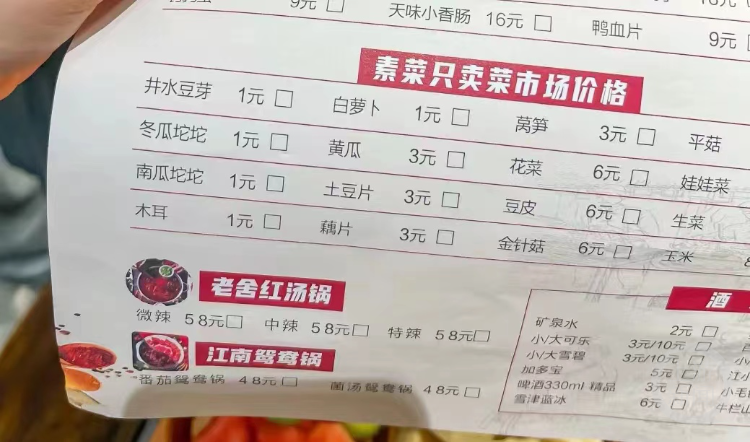 9元□ 天味小香肠 16元□ 鸭血片 9元
素菜只卖菜市场价格
井水豆芽 1元□ 白萝卜 1元□ 莴笋 3元□ 平菇
冬瓜坨坨 1元□ 黄瓜 3元□ 花菜 6元□ 娃娃菜
南瓜坨坨 1元□ 土豆片 3元□ 豆皮 6元□ 生菜
木耳 1元□ 藕片 3元□ 金针菇 6元□ 玉米
老舍红汤锅
微辣 58元□ 中辣 58元□ 特辣 58元□
江南鸳鸯锅
番茄鸳鸯锅 48元□ 菌汤鸳鸯锅 48元□
酒
矿泉水 2元□
小/大可乐 3元/10元□
小/大雪碧 3元/10元□
加多宝 5元□ 江小
啤酒330ml 精品 3元□ 小毛
雪津蓝冰 6元□ 牛栏山